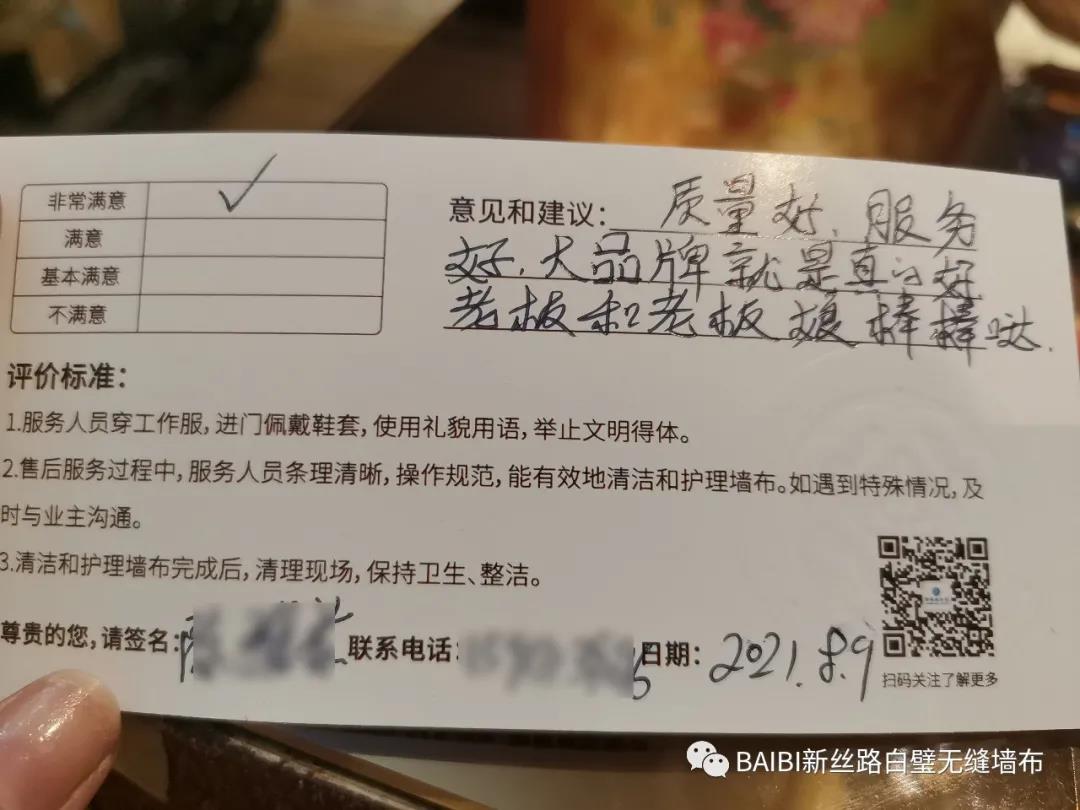 非常满意 ✓
满意
基本满意
不满意
意见和建议：质量好，服务
好，大品牌就是真的好
老板和老板娘棒棒哒.
评价标准：
1.服务人员穿工作服，进门佩戴鞋套，使用礼貌用语，举止文明得体。
2.售后服务过程中，服务人员条理清晰，操作规范，能有效地清洁和护理墙布。如遇到特殊情况，及
时与业主沟通。
3.清洁和护理墙布完成后，清理现场，保持卫生、整洁。
尊贵的您，请签名： 联系电话： 日期：2021.8.9
扫码关注了解更多
BAIBI新丝路白璧无缝墙布